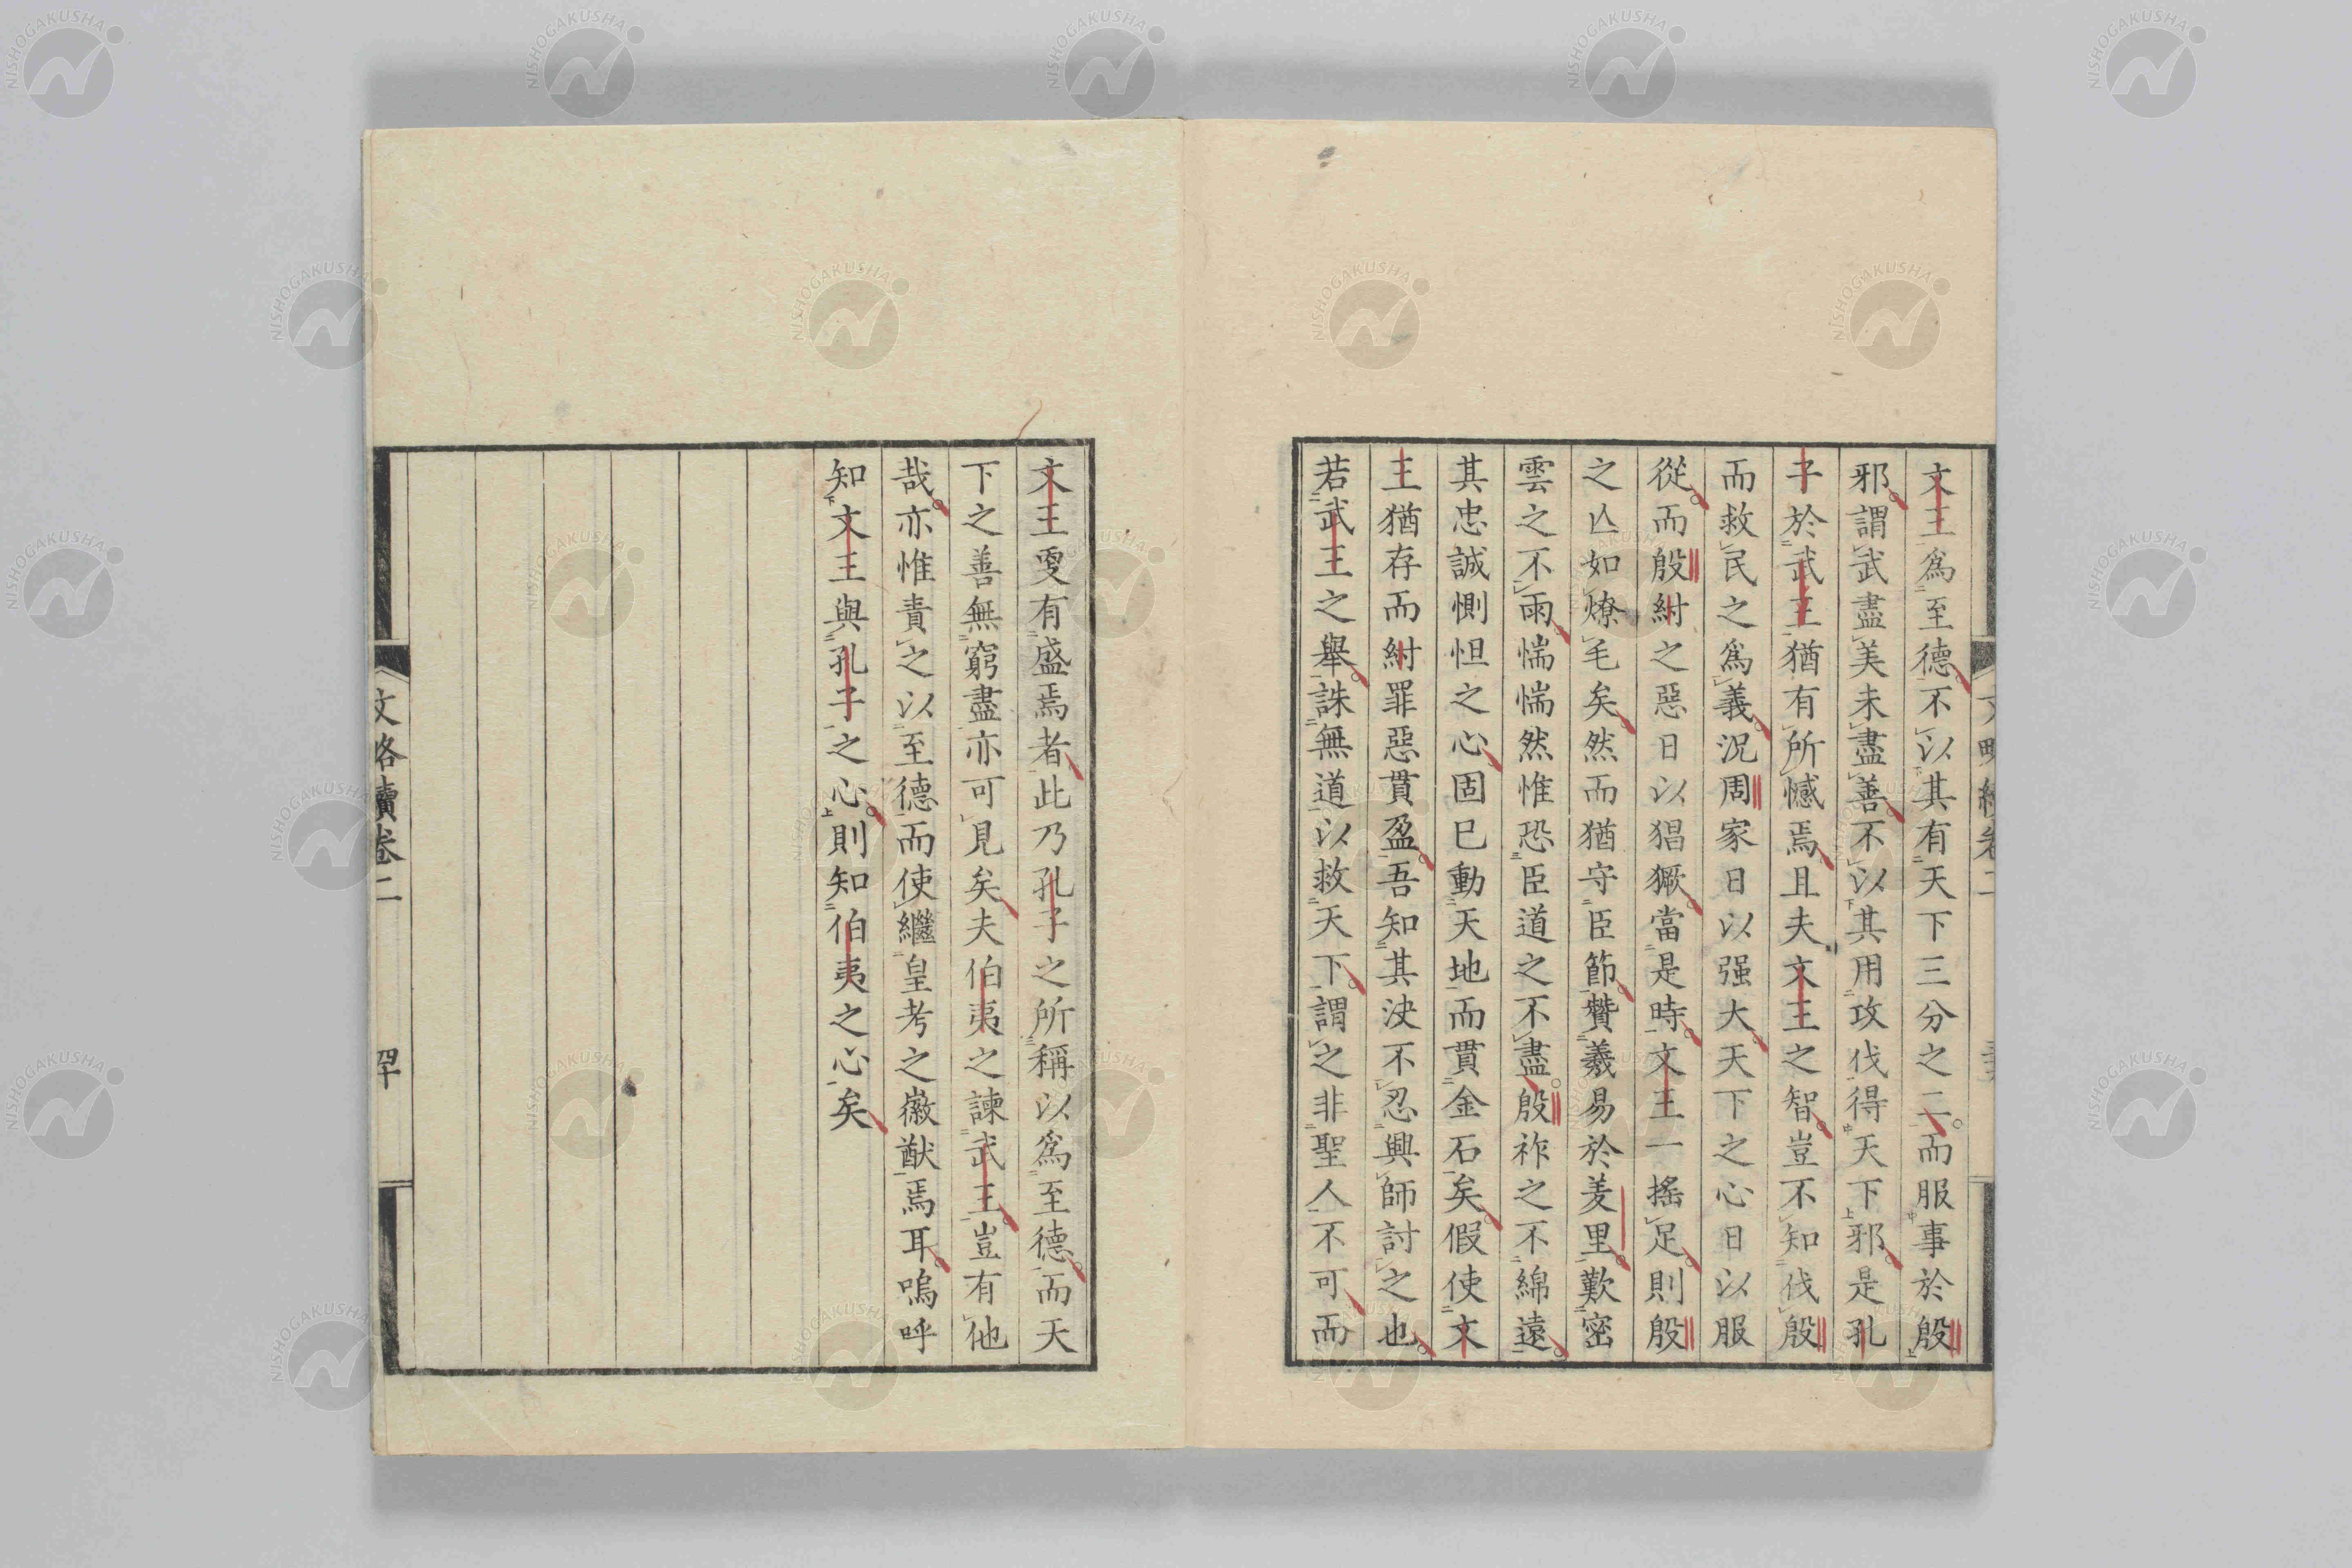 文王爲至德不以其有天下三分之二而服事於殷
邪謂武盡美未盡善不以其用攻伐得天下邪是孔
子於武王猶有所憾焉且夫文王之智豈不知伐殷
而救民之爲義況周家日以强大天下之心日以服
從而殷紂之惡日以猖獗當是時文王一搖足則殷
之亾如燎毛矣然而猶守臣節贊羲易於羑里歎密
雲之不雨惴惴然惟恐臣道之不盡殷祚之不綿遠
其忠誠惻怛之心固已動天地而貫金石矣假使文
王猶存而紂罪惡貫盈吾知其決不忍興師討之也
若武王之舉誅無道以救天下謂之非聖人不可而
文王更有盛焉者此乃孔子之所稱以爲至德而天
下之善無窮盡亦可見矣夫伯夷之諫武王豈有他
哉亦惟責之以至德而使繼皇考之徽猷焉耳嗚呼
知文王與孔子之心則知伯夷之心矣
文略續卷二
NISHOGAKUSHA